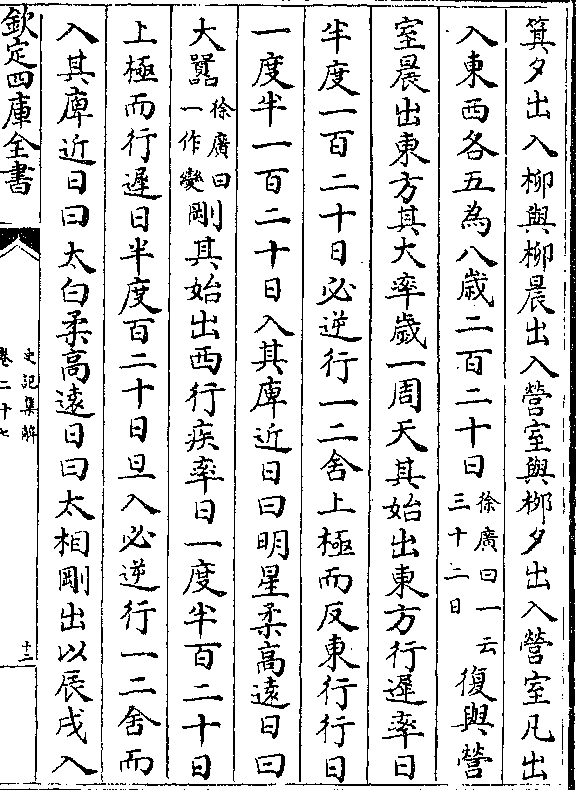 箕夕出入柳與柳晨出入營室與柳夕出入營室凡出
入東西各五為八歳二百二十日徐廣曰一云三十二日復與營
室晨出東方其大率歳一周天其始出東方行遲率日
半度一百二十日必逆行一二舍上極而反東行行日
一度半一百二十日入其庳近日曰明星柔高逺日曰
大嚻徐廣曰一作變剛其始出西行疾率日一度半百二十日
上極而行遲日半度百二十日旦入必逆行一二舍而
入其庳近日曰太白柔高逺日曰太相剛出以辰戌入
欽定四庫全書
史記集解
卷二十七
十二